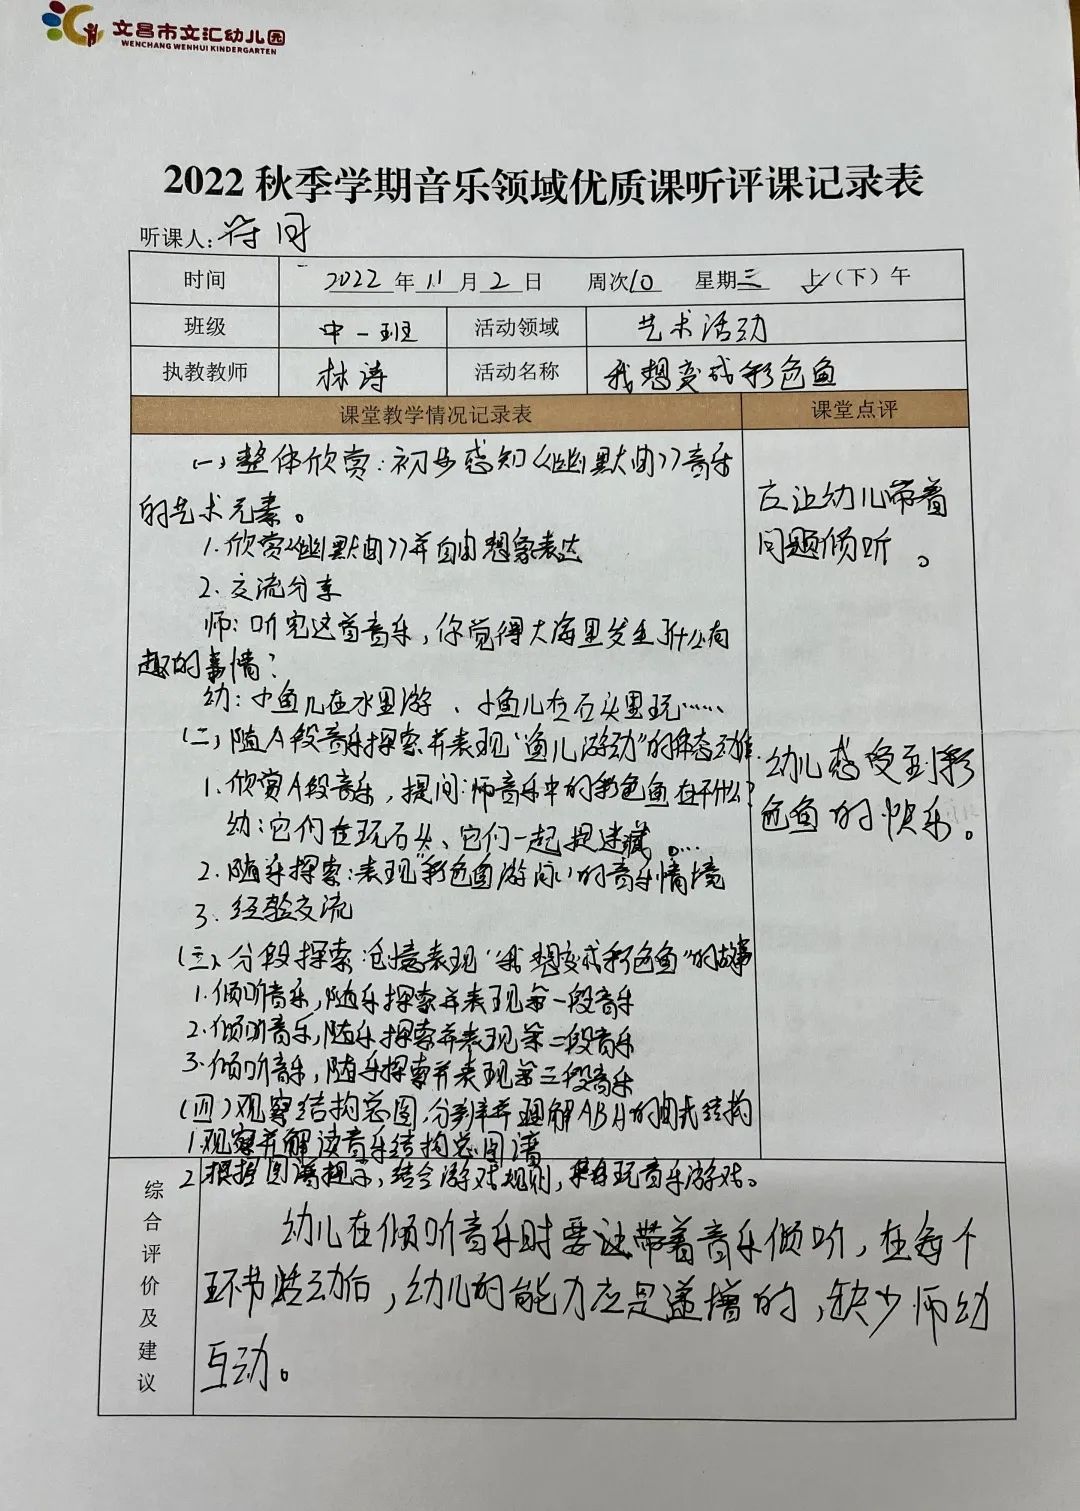 文昌市文汇幼儿园
WENCHANG WENHUI KINDERGARTEN
2022 秋季学期音乐领域优质课听评课记录表
听课人: 符月
时间 2022 年 11 月 2 日 周次 10 星期 三 上(下)午
班级 中一班 活动领域 艺术活动
执教教师 林涛 活动名称 我想变成彩色鱼
课堂教学情况记录表 课堂点评
(一)整体欣赏:初步感知《幽默曲》音乐
的艺术元素。
1.欣赏《幽默曲》并自由想象表达
2.交流分享
师:听完这首音乐,你觉得大海里发生了什么有
趣的事情?
幼:小鱼儿在水里游、小鱼儿在石头里玩……
(二)随A段音乐探索并表现"鱼儿游动"的体态动作.
1.欣赏A段音乐,提问:师音乐中的彩色鱼在干什么?
幼:它们在玩石头、它们一起捉迷藏。…
2.随乐探索:表现"彩色鱼游泳"的音乐情境
3.经验交流
(三)分段探索:创意表现"我想变成彩色鱼"的故事
1.倾听音乐,随乐探索并表现第一段音乐
2.倾听音乐,随乐探索并表现第二段音乐
3.倾听音乐,随乐探索并表现第三段音乐
(四)观察结构总图,分辨并理解ABA的曲式结构
1.观察并解读音乐结构总图谱
2.根据图谱提示,结合游戏规则,来玩音乐游戏。
应让幼儿带着
问题倾听。
幼儿感受到彩
色鱼的快乐。
综合评价及建议
幼儿在倾听音乐时要让带着音乐倾听,在每个
环节活动后,幼儿的能力应是递增的,缺少师幼
互动。